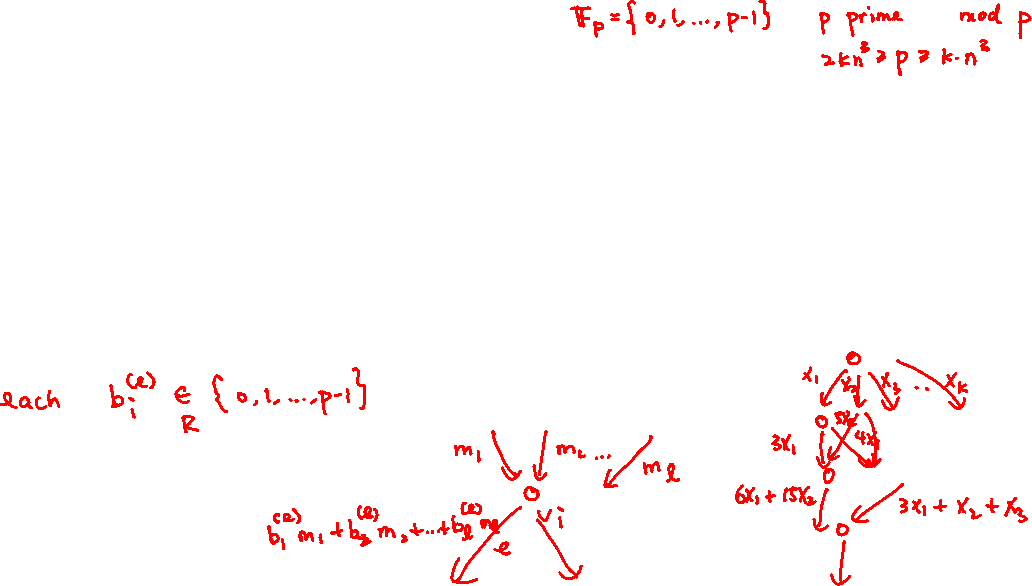 𝔽_p = { 0, 1, ..., p-1 }   p prime   mod p
2kn³ ≥ p ≥ k·n³
each b_i^(e) ∈_R { 0, 1, ..., p-1 }
m_1 m_2 ... m_l
v_i
b_1^(e) m_1 + b_2^(e) m_2 + ... + b_l^(e) m_l
e
x_1 x_2 x_3 .. x_k
3x_1
6x_1 + 15x_2
3x_1 + x_2 + x_3